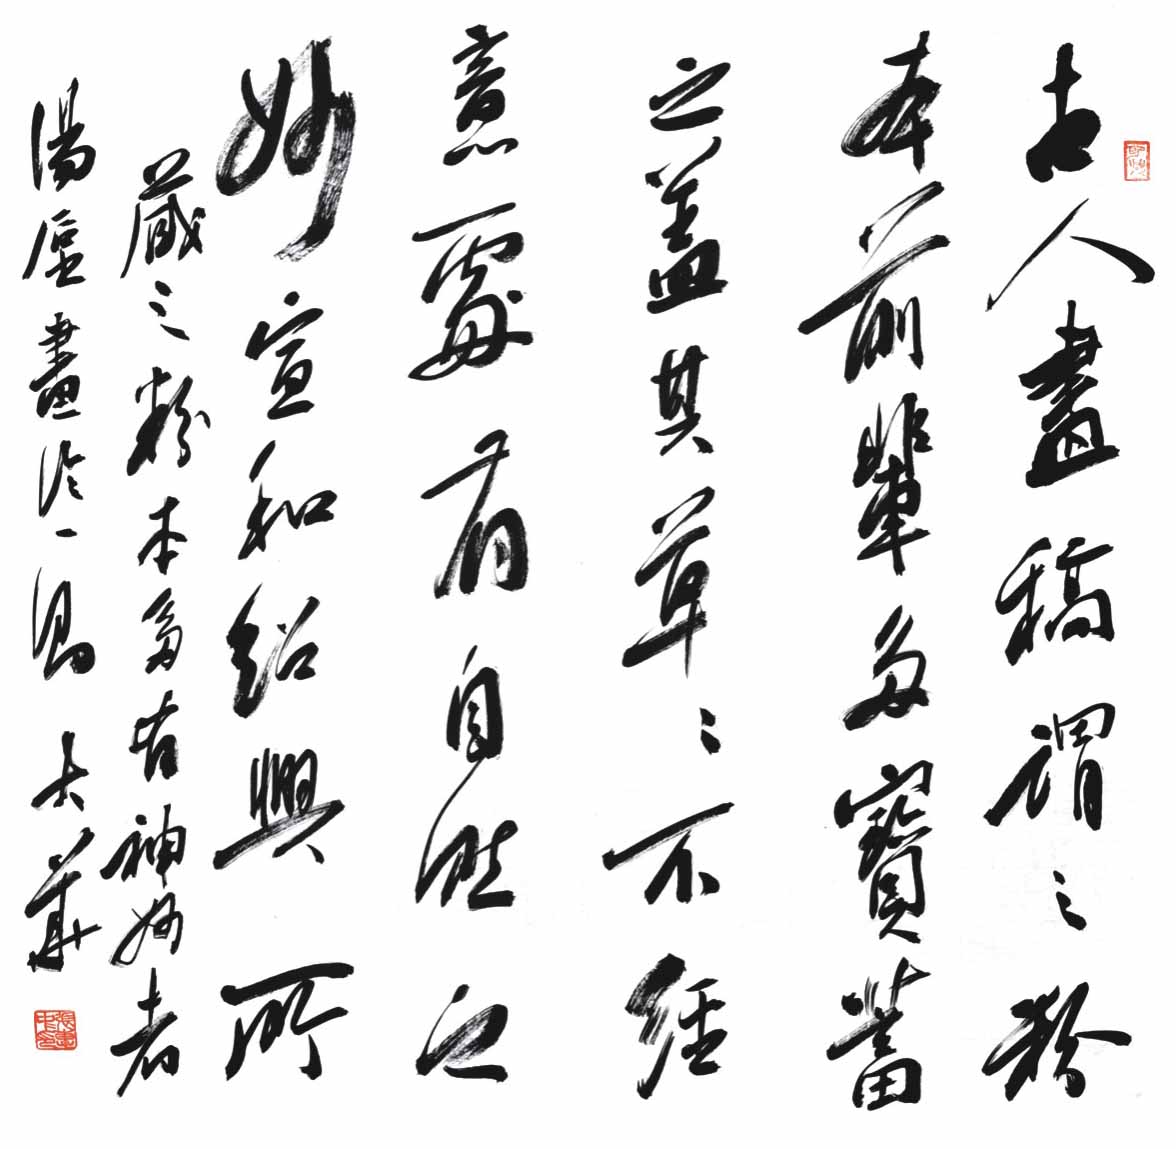 古人畫稿謂之粉
本前輩多寶蓄
之蓋其草〻不經
意處有自然之
妙宣和紹興所
藏之粉本多有神妙者
湯垕畫論一則 大華